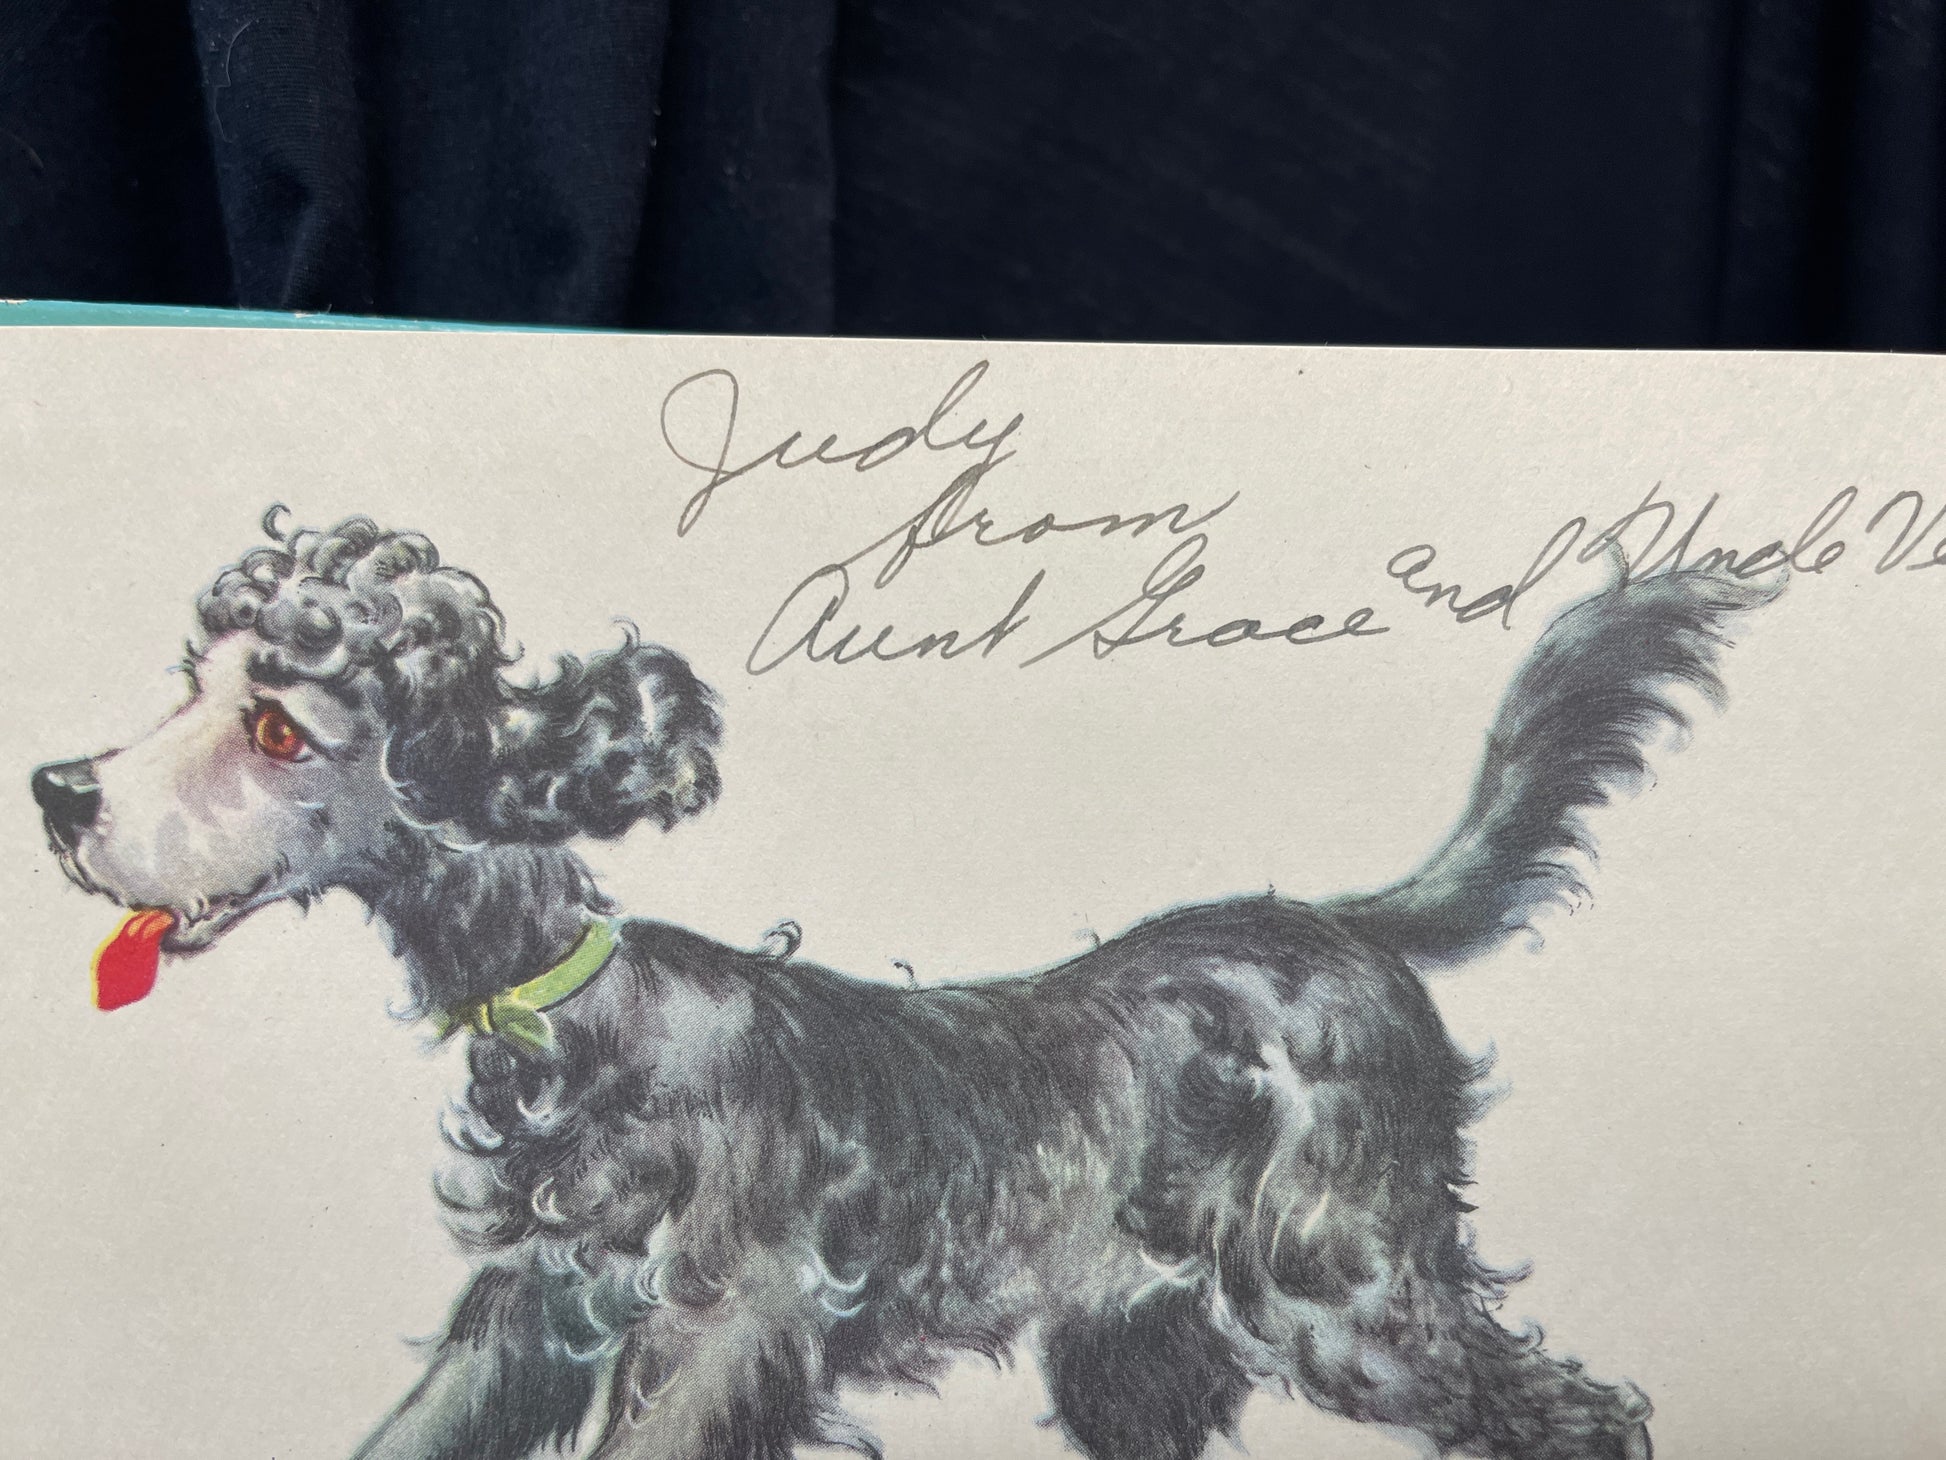 Judy
from
Aunt Grace and Uncle Ve